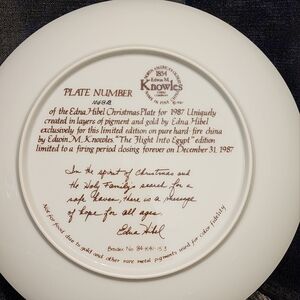 1854
Edwin M.
Knowles
PLATE NUMBER
of the Edna Hibel Christmas Plate for 1987. Uniquely
created in layers of pigment and gold by Edna Hibel
exclusively for this limited edition on pure hard-fire china
by Edwin M. Knowles. "The Flight Into Egypt" edition
limited to a firing period closing forever on December 31, 1987
In the spirit of Christmas and
the Holy Family's search for a
safe haven, there is a message
of hope for all ages.
Edna Hibel
Bradex No. 84-K41-15.3
Not for food due to gold and other rare metal pigments used for color fidelity